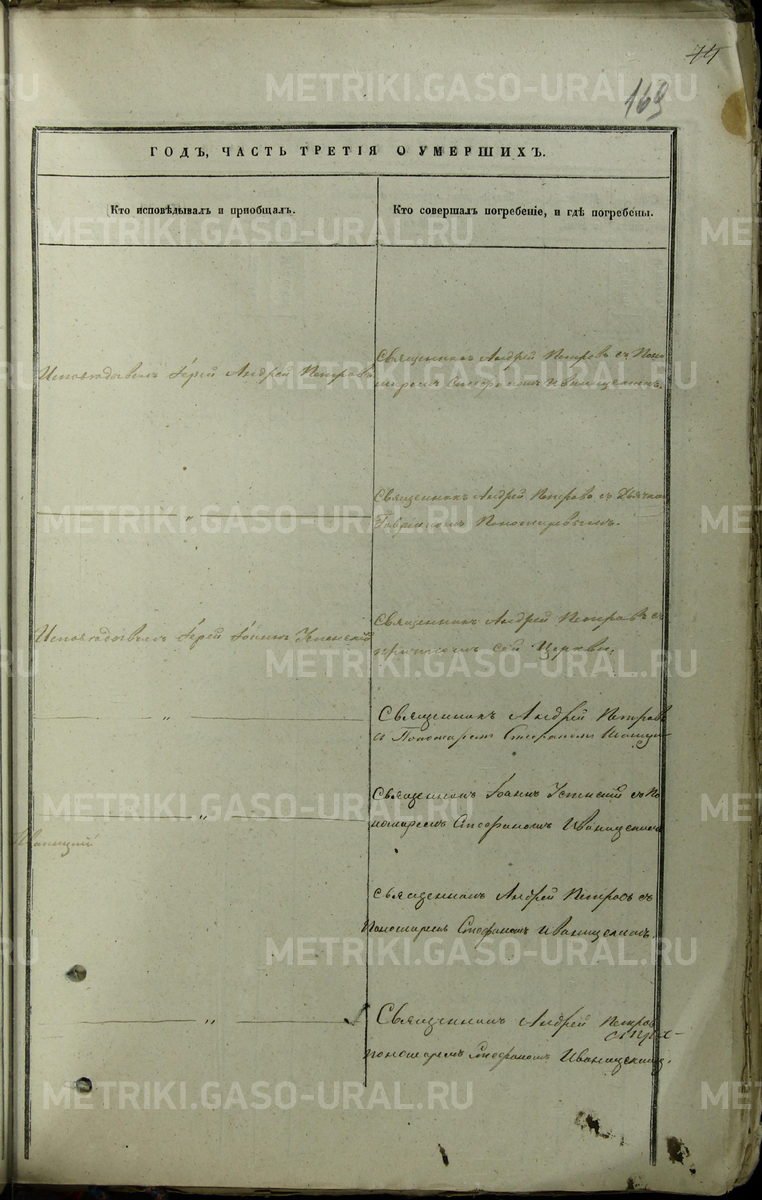 169
ГОДЪ, ЧАСТЬ ТРЕТІЯ О УМЕРШИХЪ.
Кто исповѣдывалъ и пріобщалъ.
Кто совершалъ погребеніе, и гдѣ погребены.
Исповѣдывалъ Іерей Андрей Петровъ
Священникъ Андрей Петровъ съ Поно
маремъ Стефаномъ Иваницкимъ.
"
Священникъ Андрей Петровъ съ Дьячко
Гавріиломъ Пономаревымъ.
Исповѣдывалъ Іерей Іоаннъ
Священникъ Андрей Петровъ съ
причтомъ сей Церкви.
"
Священникъ Андрей Петровъ
съ Пономаремъ Стефаномъ
"
Священникъ Іоаннъ съ По
номаремъ Стефаномъ Иваницкимъ
Священникъ Андрей Петровъ съ
Пономаремъ Стефаномъ Иваницкимъ.
"
Священникъ Андрей Петров
пономаремъ Стефаномъ Иваницкимъ.
METRIKI.GASO-URAL.RU